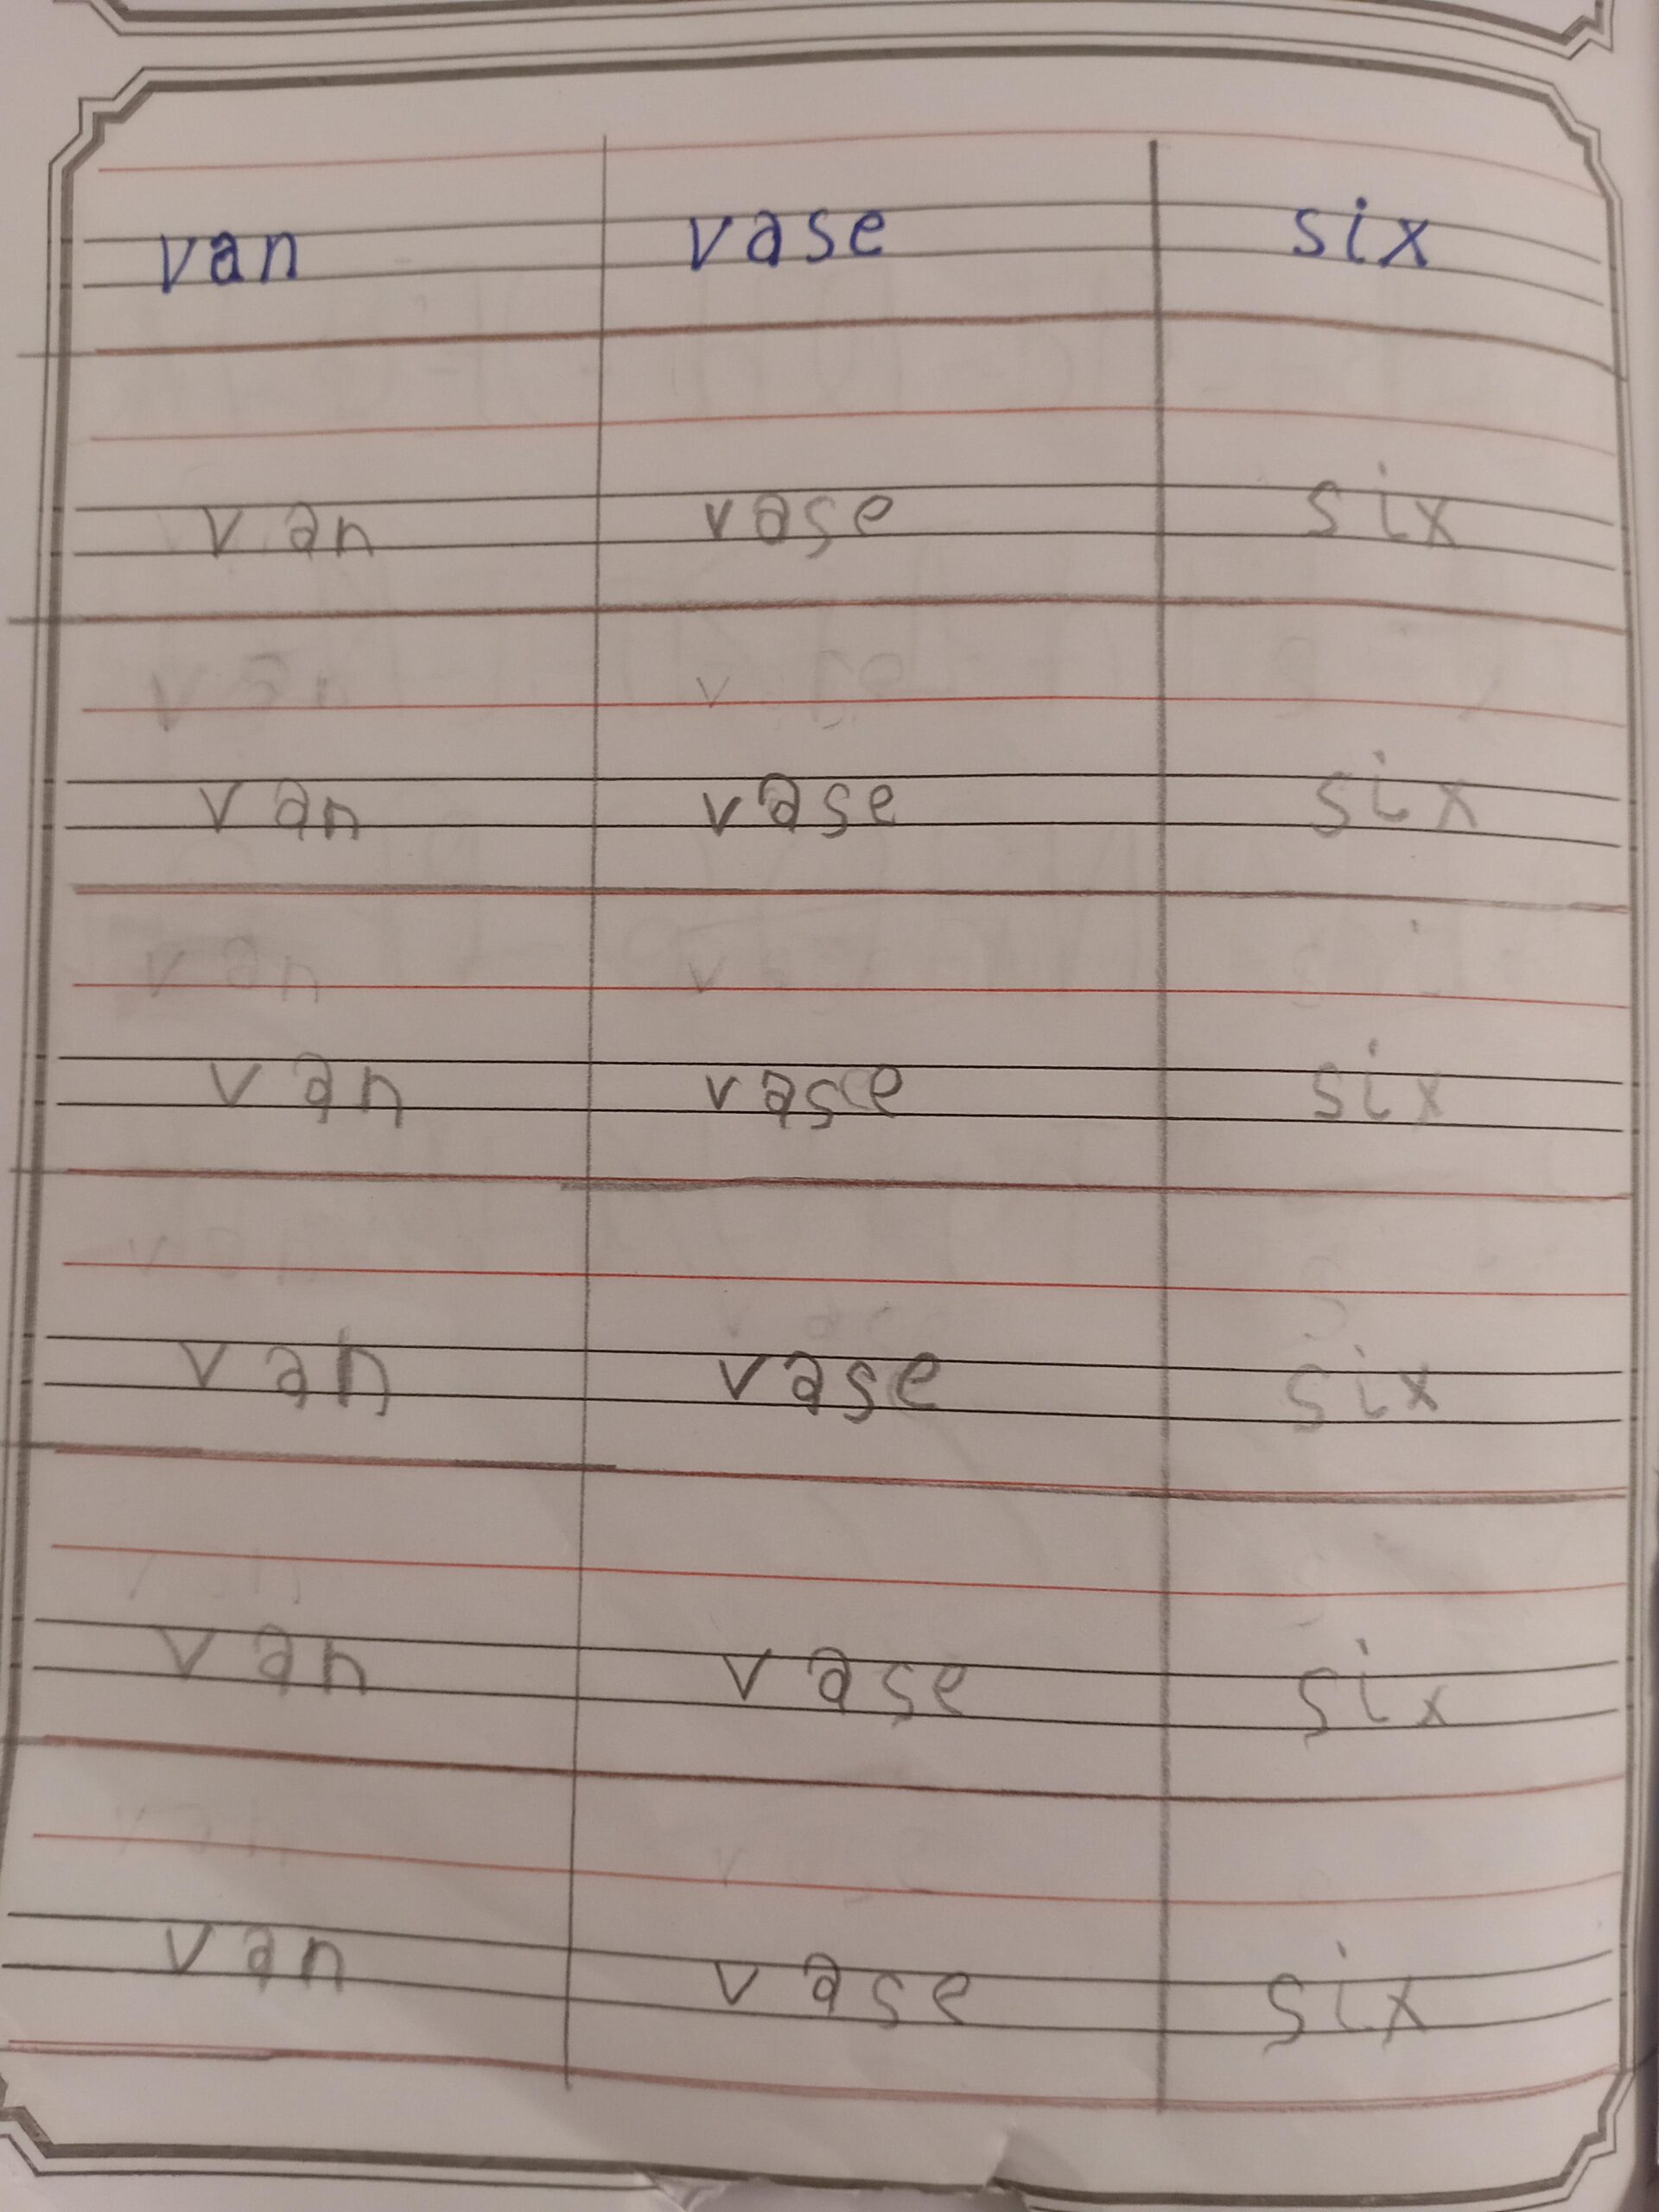 van vase six
van vase six
van vase six
van vase six
van vase six
van vase six
van vase six